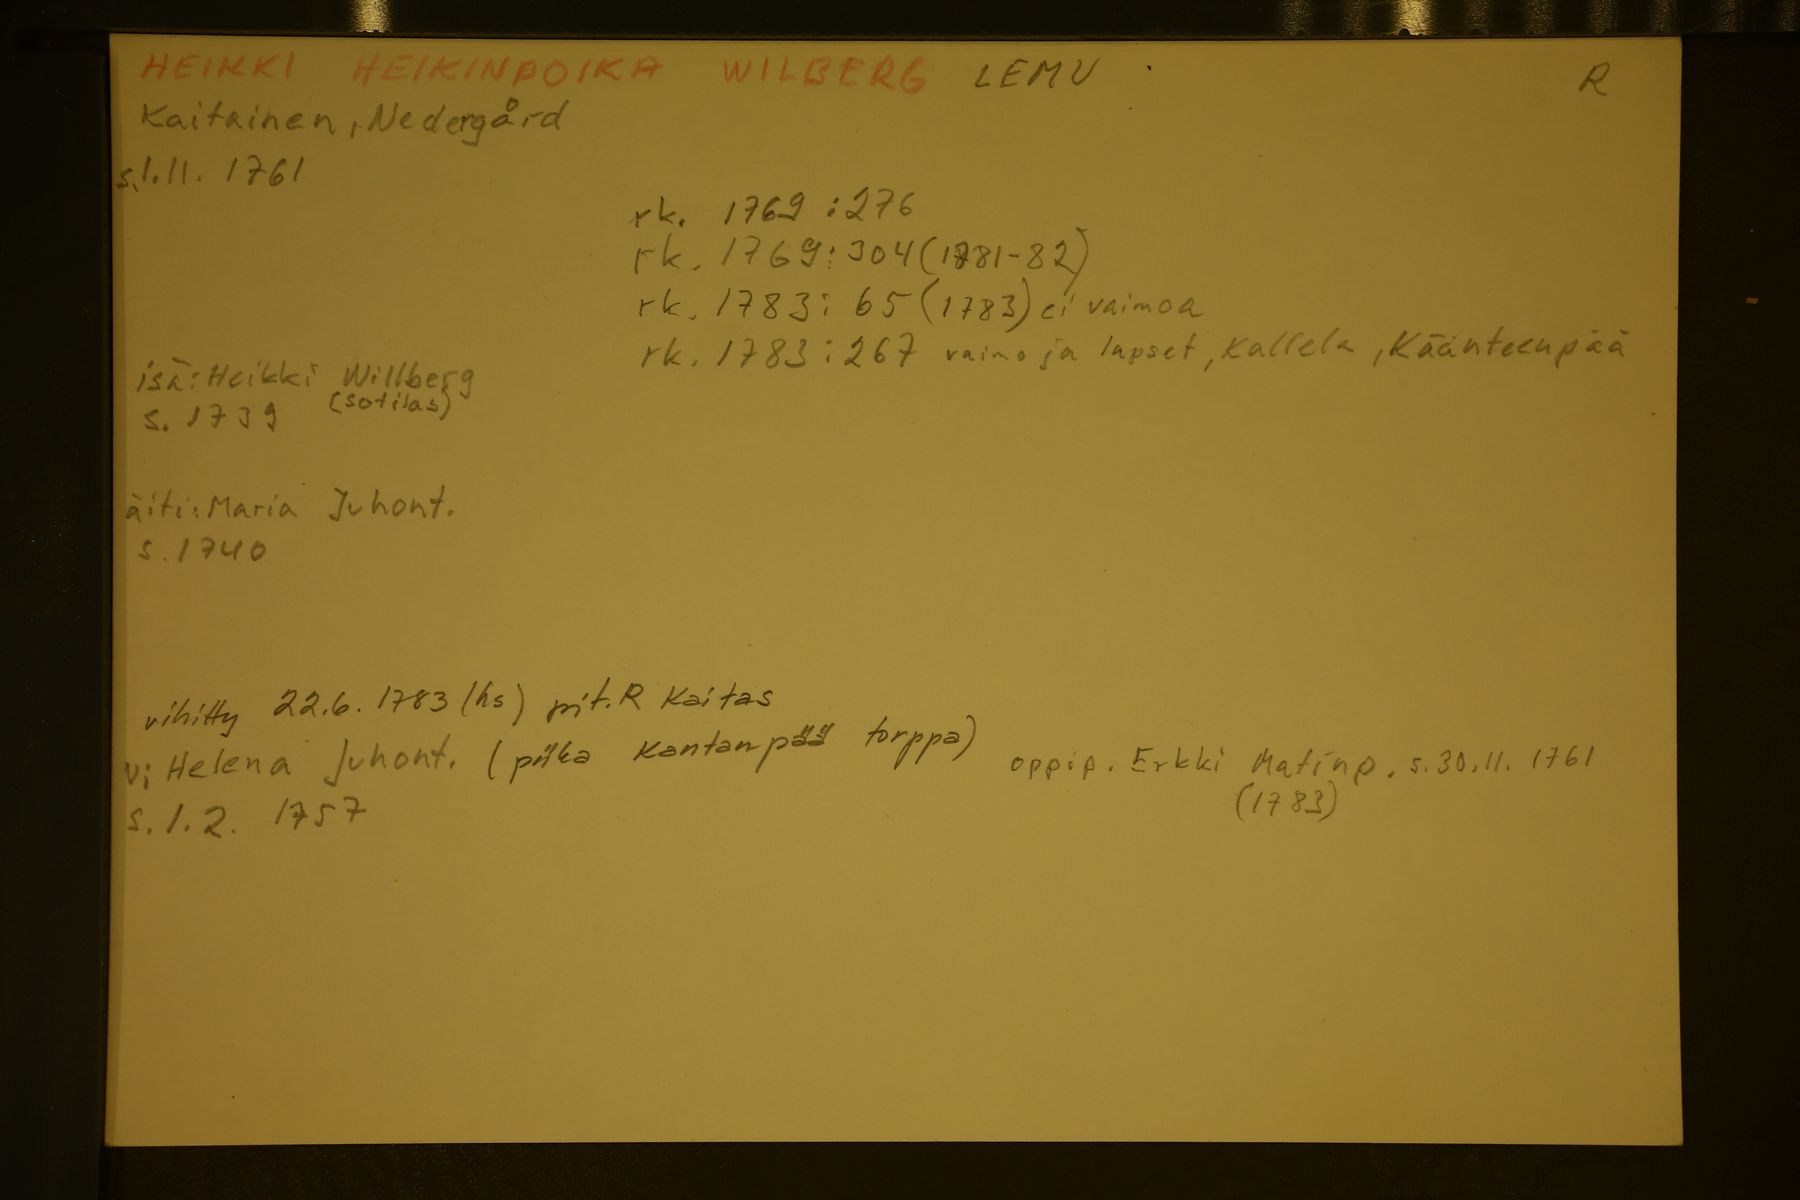 HEIKKI HEIKINPOIKA WILBERG LEMU R
Kaitainen, Nedergård
s. 1.11. 1761
rk. 1769 : 276
rk. 1769 : 304 (1781-82)
rk. 1783 : 65 (1783) ei vaimoa
rk. 1783 : 267 vaimo ja lapset, Kallela, Käänteenpää
isä: Heikki Willberg
(sotilas)
s. 1739
äiti: Maria Juhont.
s. 1740
vihitty 22.6. 1783 (hs) pit. R Kaitas
v: Helena Juhont. (piika Kantanpää torppa)
oppip. Erkki Matinp. s. 30.11. 1761
(1783)
s. 1.2. 1757